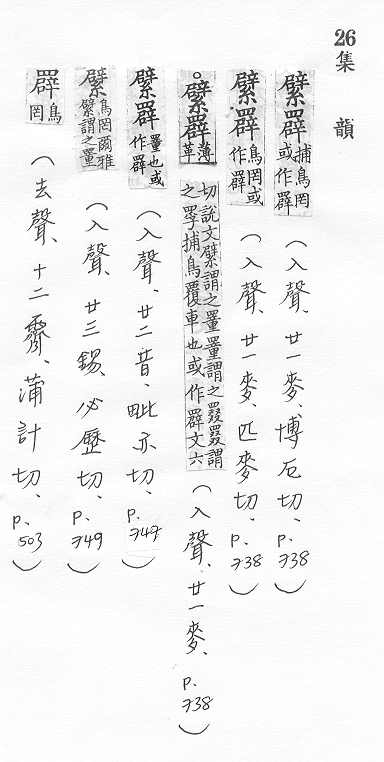 26
集 韻
繴 捕鳥罔或作 (入聲、廿一麥、博厄切、P.738)
繴 鳥罔或作 (入聲、廿一麥、匹麥切、P.738)
。繴 薄革切說文繴謂之罿罿謂之罬罬謂之罦捕鳥覆車也或作 文六 (入聲、廿一麥、P.738)
繴 罿也或作 (入聲、廿二昔、毗亦切、P.747)
繴 鳥罔爾雅繴謂之罿 (入聲、廿三錫、必歷切、P.749)
鳥罔 (去聲、十二霽、蒲計切、P.503)